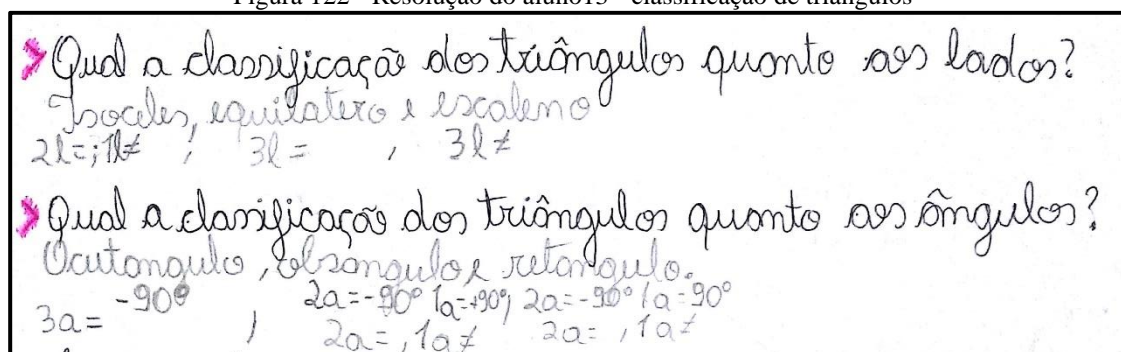 Figura 122 - Resolução do aluno13 - classificação de triângulos
Qual a classificação dos triângulos quanto aos lados?
Isoceles, equilatero e escaleno
2l=; 1l≠ ; 3l= , 3l≠
Qual a classificação dos triângulos quanto aos ângulos?
Ocutangulo, obsangulo e retangulo.
3a= -90° , 2a=-90° 1a=+90°, 2a=-90° 1a=90°
2a= , 1a≠ 2a= , 1a≠